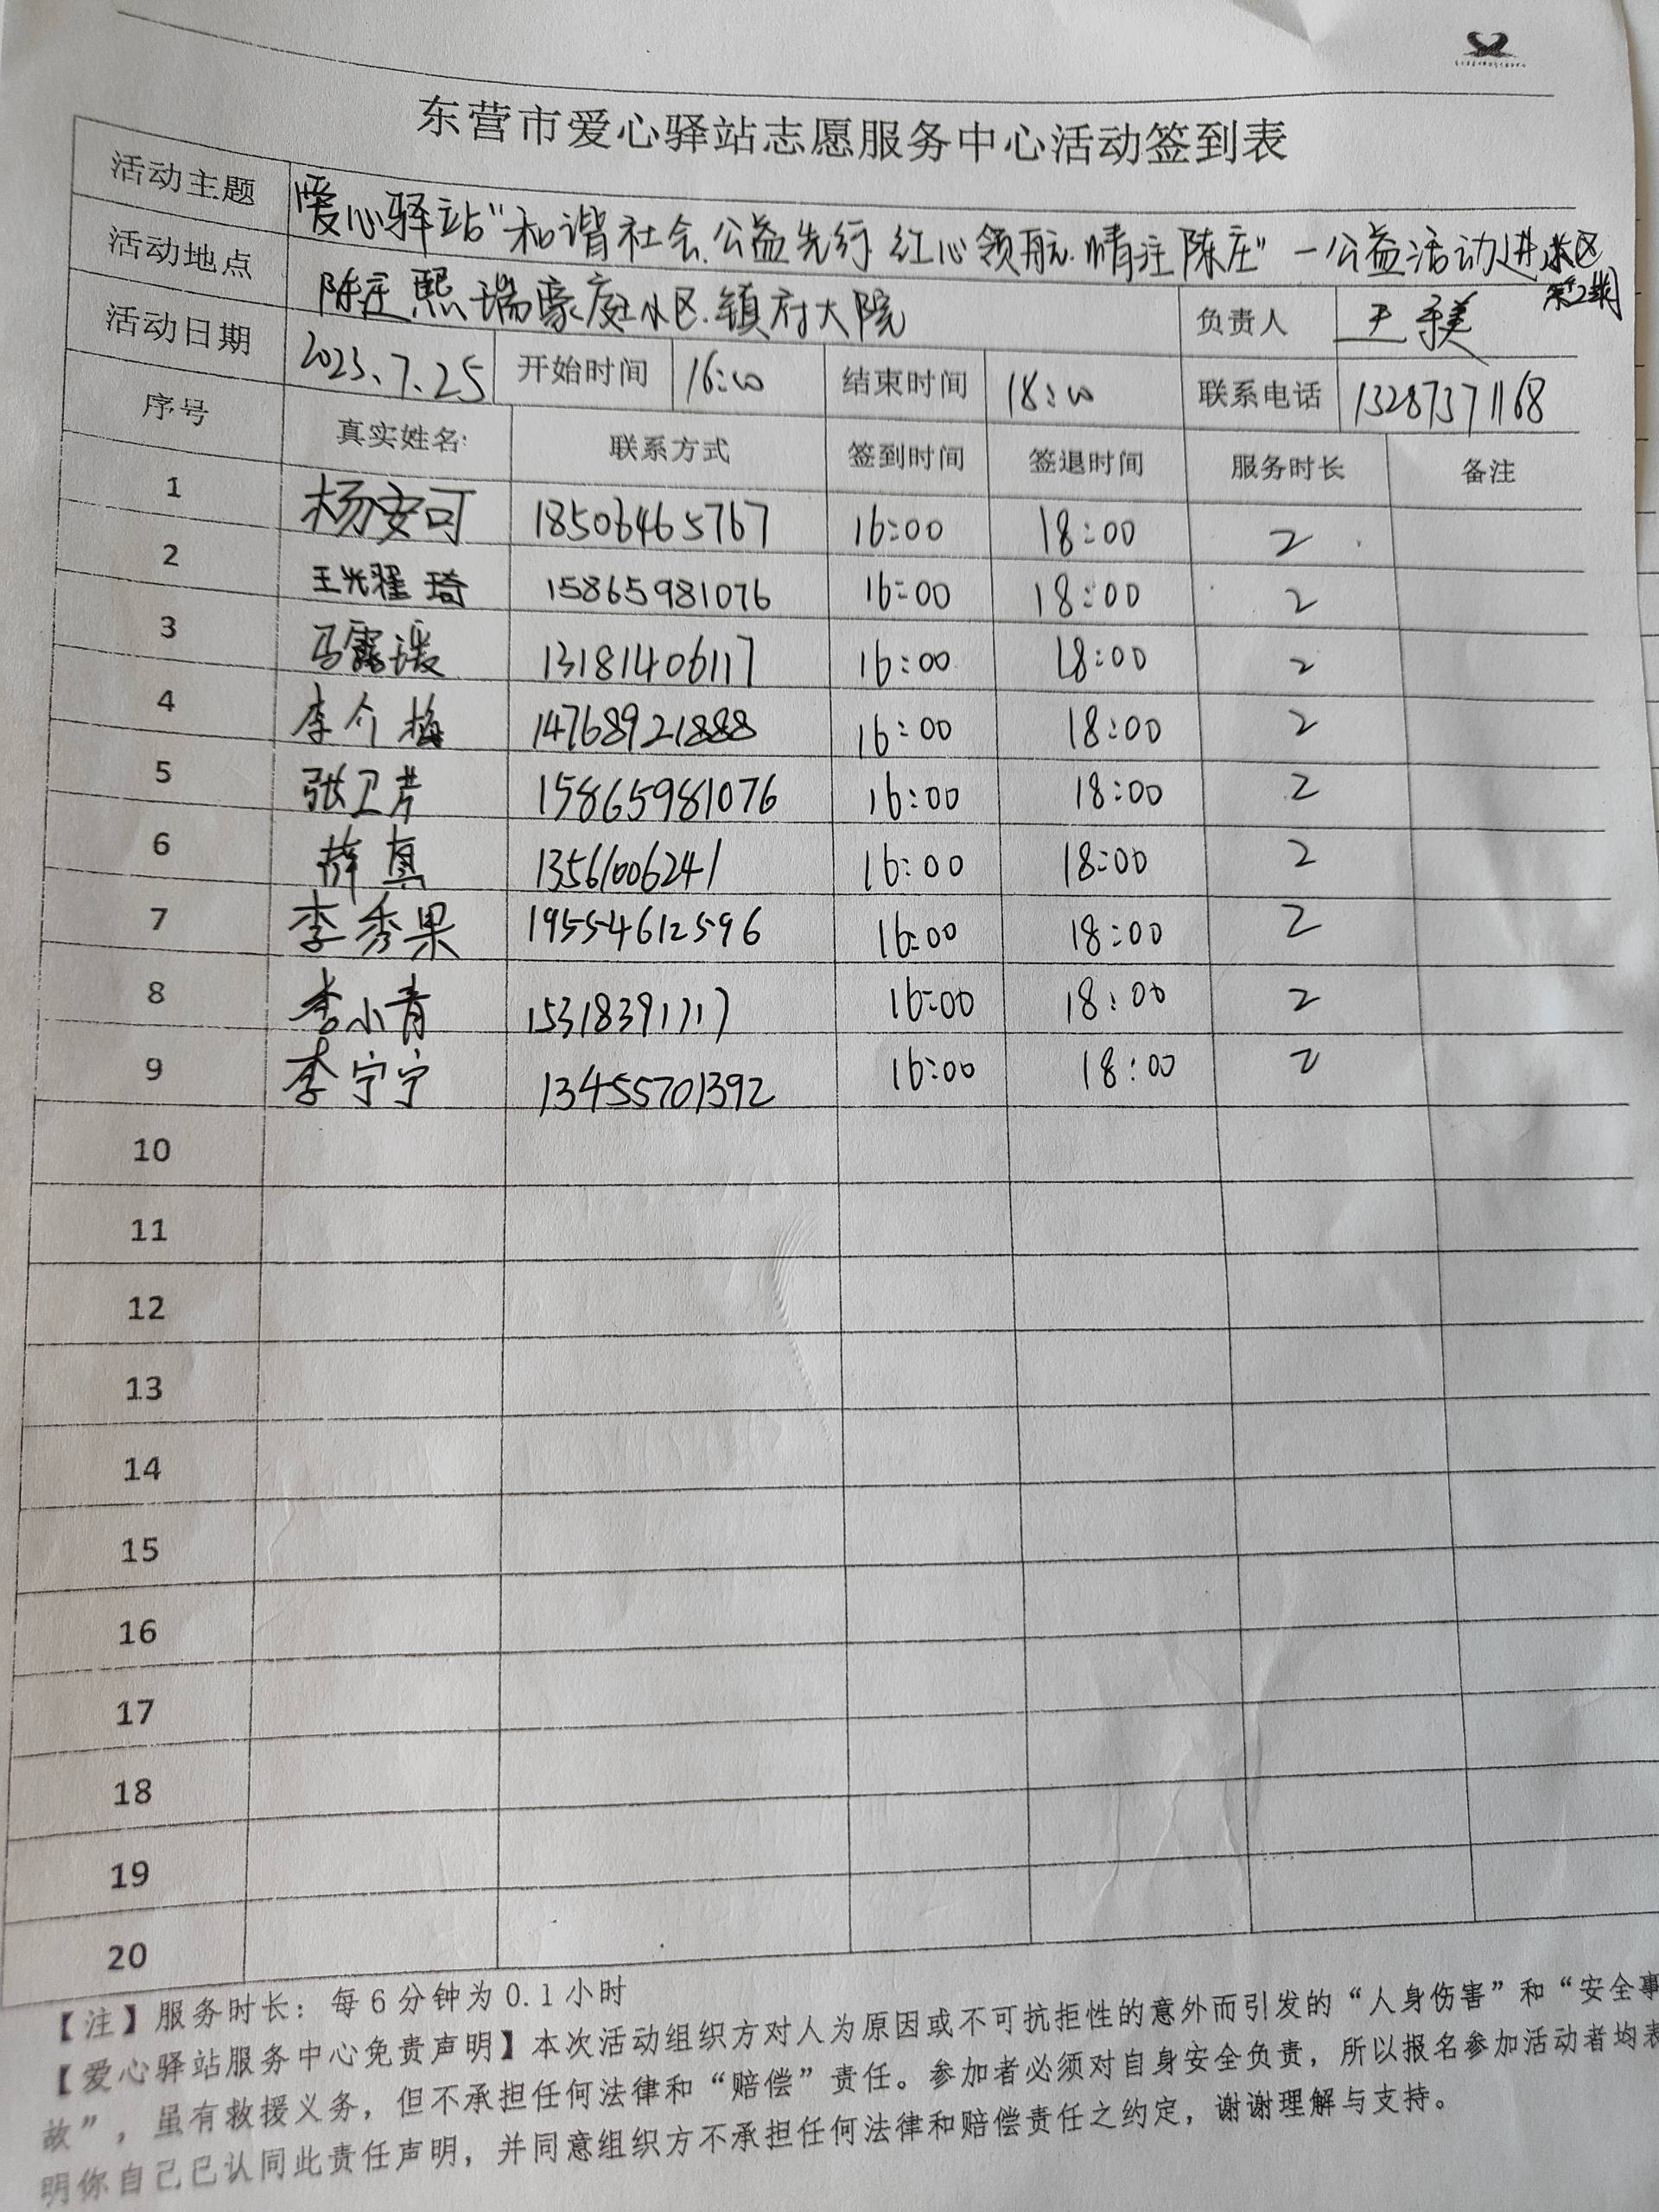 东营市爱心驿站志愿服务中心活动签到表
活动主题 爱心驿站"和谐社会.公益先行 红心领航.情注陈庄"一公益活动进小区 第2期
活动地点 陈庄熙瑞豪庭小区.镇府大院 负责人
活动日期 2023.7.25 开始时间 16:00 结束时间 18:00 联系电话 13287371168
序号 真实姓名: 联系方式 签到时间 签退时间 服务时长 备注
1 杨安可 18506465767 16:00 18:00 2
2 王光耀琦 15865981076 16:00 18:00 2
3 马露瑗 13181406117 16:00 18:00 2
4 李介梅 14768921888 16:00 18:00 2
5 张卫芳 15865981076 16:00 18:00 2
6 薛真 13561006241 16:00 18:00 2
7 李秀果 19554612596 16:00 18:00 2
8 李小青 15318391717 16:00 18:00 2
9 李宁宁 13455701392 16:00 18:00 2
10
11
12
13
14
15
16
17
18
19
20
【注】服务时长：每6分钟为0.1小时
【爱心驿站服务中心免责声明】本次活动组织方对人为原因或不可抗拒性的意外而引发的“人身伤害”和“安全事
故”，虽有救援义务，但不承担任何法律和“赔偿”责任。参加者必须对自身安全负责，所以报名参加活动者均表
明你自己已认同此责任声明，并同意组织方不承担任何法律和赔偿责任之约定，谢谢理解与支持。